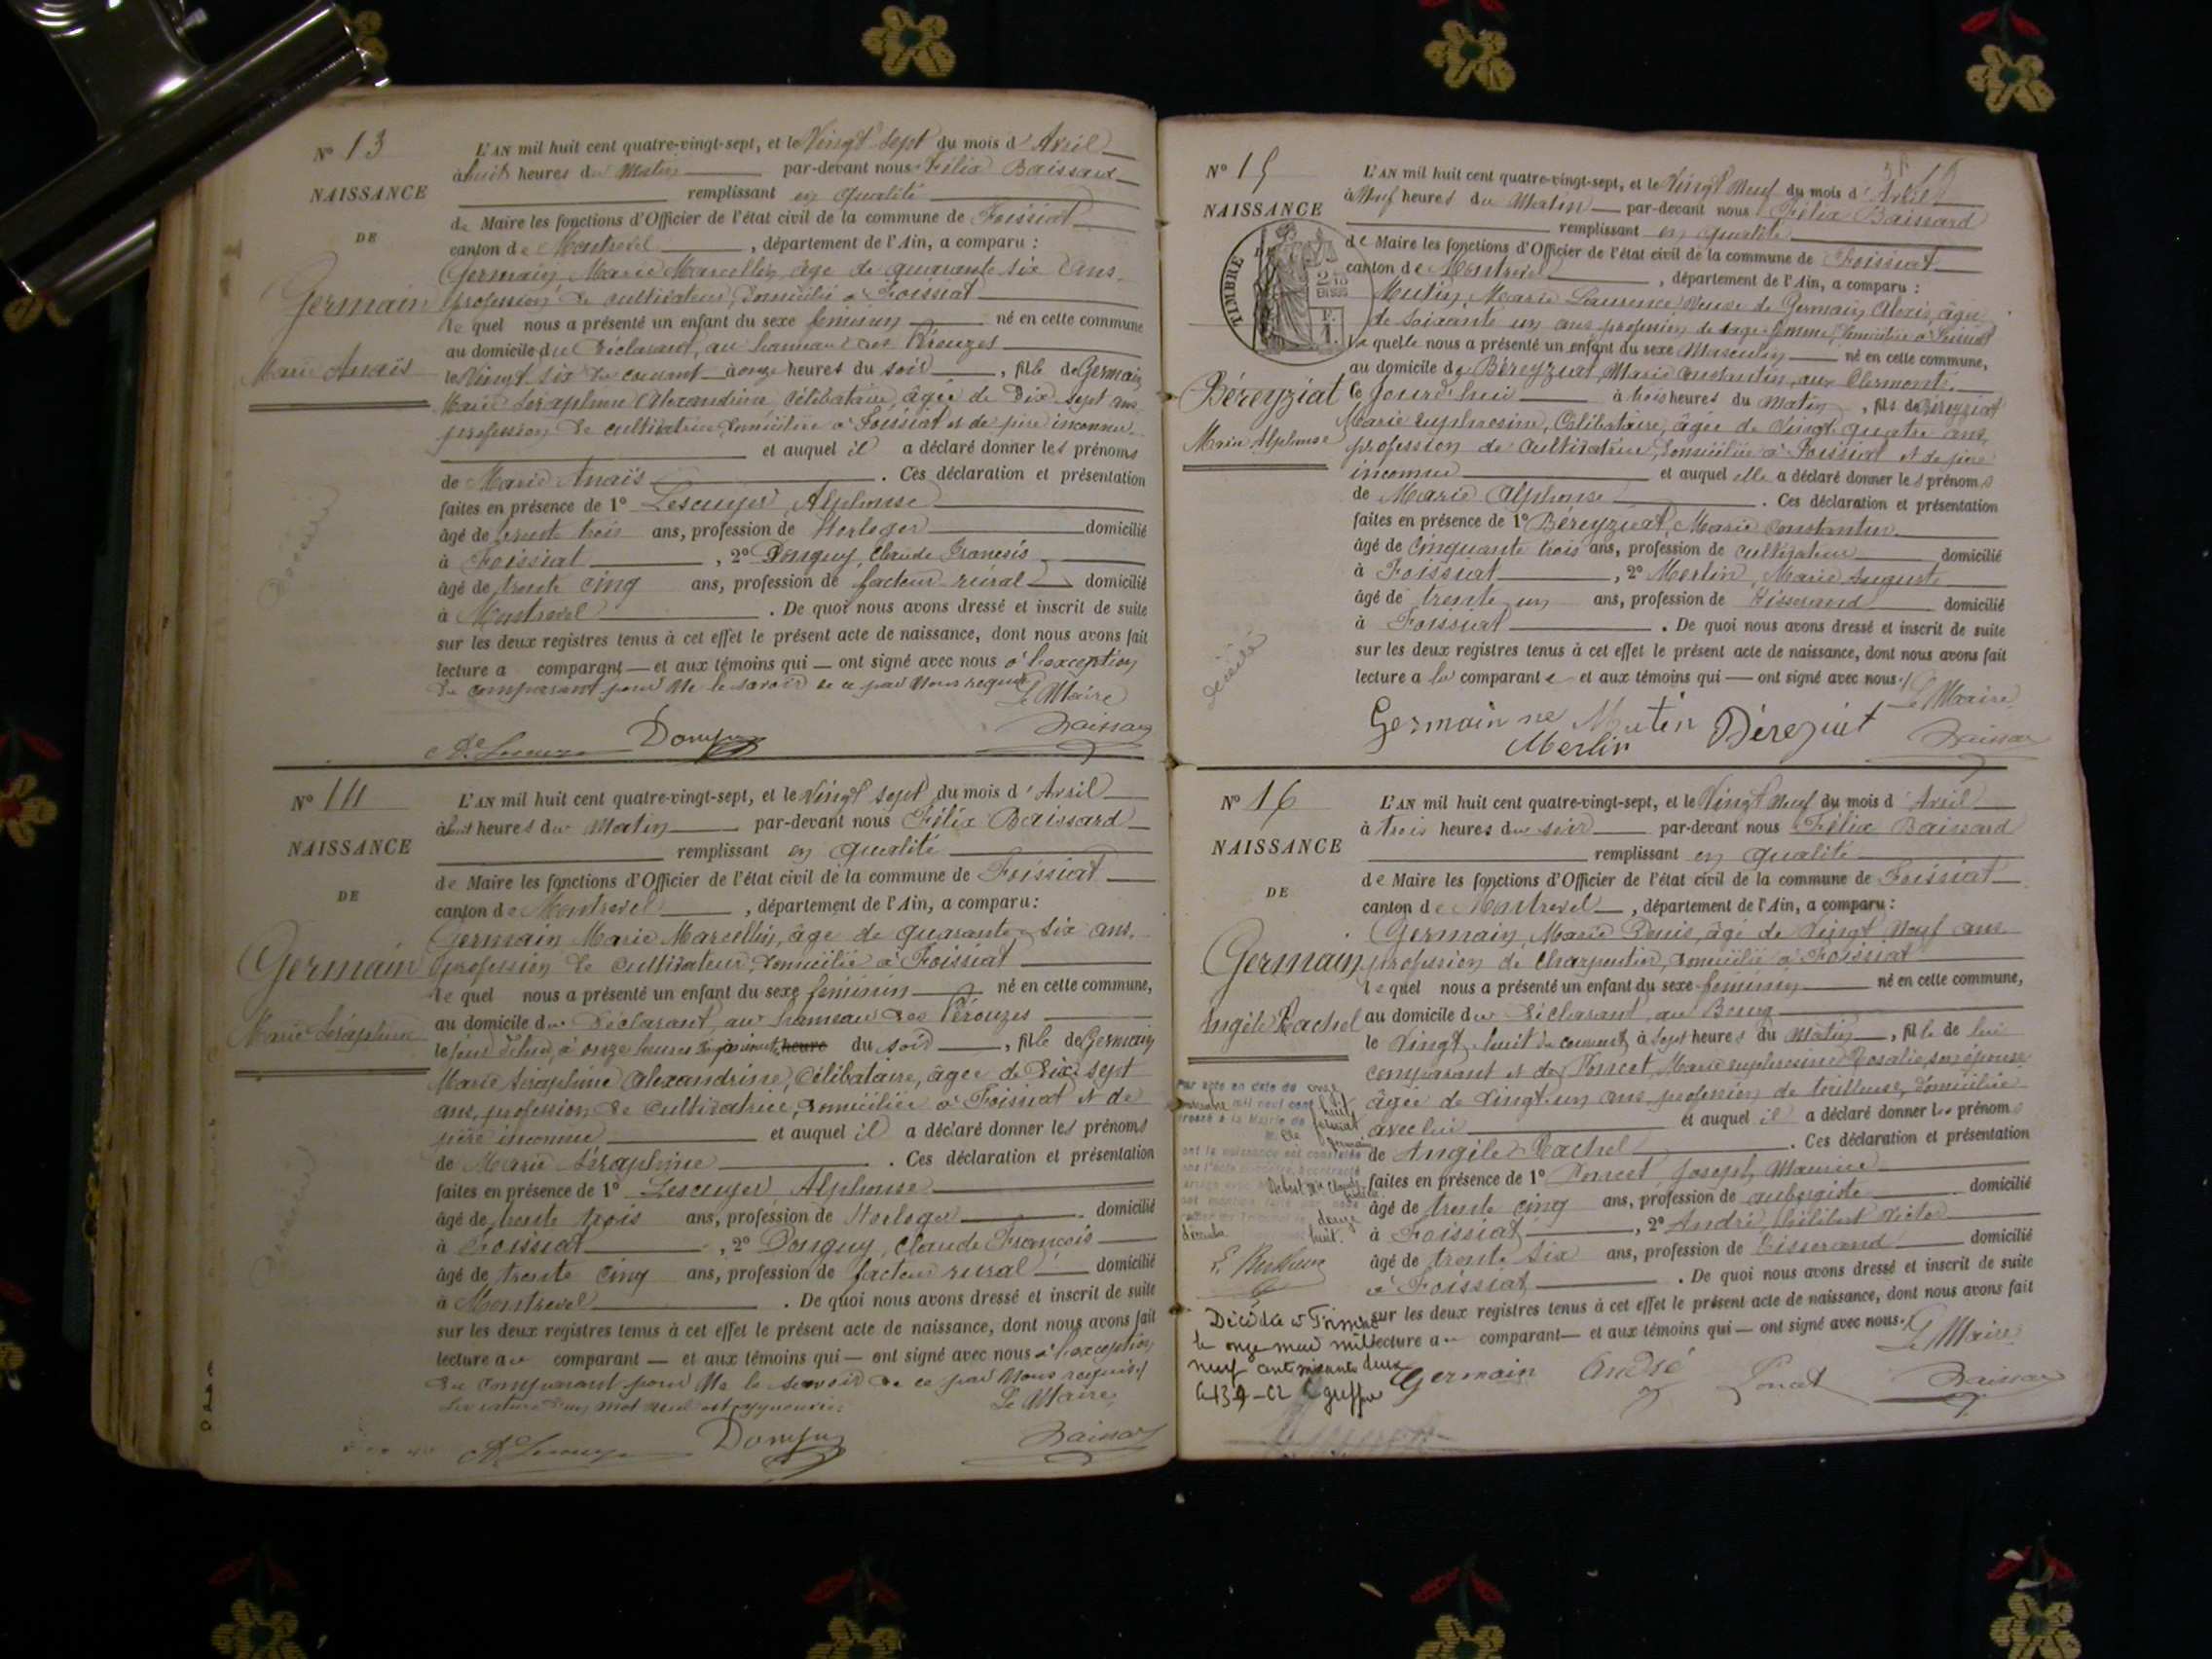 N° 13
NAISSANCE
DE
Germain
Marie Anaïs
L'AN mil huit cent quatre-vingt-sept, et le Vingt sept du mois d'Avril
à huit heures du Matin par-devant nous Félix Baissard
remplissant en qualité
de Maire les fonctions d'Officier de l'état civil de la commune de Foissiat
canton de Montrevel, département de l'Ain, a comparu :
Germain, Marie Marcellin, âgé de quarante six ans
profession de cultivateur, domicilié à Foissiat
le quel nous a présenté un enfant du sexe féminin né en cette commune
au domicile du déclarant, au hameau des Pérouzes
le Vingt six du courant à onze heures du soir, fille de Germain
Marie Séraphine Alexandrine, célibataire, âgée de Dix sept ans,
profession de cultivatrice, domiciliée à Foissiat et de père inconnu
et auquel il a déclaré donner les prénoms
de Marie Anaïs. Ces déclaration et présentation
faites en présence de 1° Lescuyer, Alphonse
âgé de trente trois ans, profession de Horloger domicilié
à Foissiat, 2° Donguy, Claude François
âgé de trente cinq ans, profession de facteur rural domicilié
à Montrevel. De quoi nous avons dressé et inscrit de suite
sur les deux registres tenus à cet effet le présent acte de naissance, dont nous avons fait
lecture a comparant — et aux témoins qui — ont signé avec nous à l'exception
du comparant pour ne le savoir de ce par nous requis
Le Maire
Donguy
Baissard
N° 14
NAISSANCE
DE
Germain
Marie Séraphine
L'AN mil huit cent quatre-vingt-sept, et le Vingt sept du mois d'Avril
à huit heures du Matin par-devant nous Félix Baissard
remplissant en qualité
de Maire les fonctions d'Officier de l'état civil de la commune de Foissiat
canton de Montrevel, département de l'Ain, a comparu :
Germain Marie Marcellin, âgé de quarante six ans,
profession de cultivateur, domicilié à Foissiat
le quel nous a présenté un enfant du sexe féminin né en cette commune,
au domicile du déclarant, au hameau des Pérouzes
le à onze heures heure du soir, fille de Germain
Marie Séraphine Alexandrine, célibataire, âgée de Dix sept
ans, profession de cultivatrice, domiciliée à Foissiat et de
père inconnu et auquel il a déclaré donner les prénoms
de Marie Séraphine. Ces déclaration et présentation
faites en présence de 1° Lescuyer, Alphonse
âgé de trente trois ans, profession de Horloger domicilié
à Foissiat, 2° Donguy, Claude François
âgé de trente cinq ans, profession de facteur rural domicilié
à Montrevel. De quoi nous avons dressé et inscrit de suite
sur les deux registres tenus à cet effet le présent acte de naissance, dont nous avons fait
lecture au comparant — et aux témoins qui — ont signé avec nous à l'exception
du comparant pour ne le savoir de ce par nous requis
Le Maire
Donguy
Baissard
N° 15
NAISSANCE
DE
TIMBRE
Béreyziat
Marie Alphonse
décédé
L'AN mil huit cent quatre-vingt-sept, et le Vingt Neuf du mois d'Avril
à Neuf heures du Matin par-devant nous Félix Baissard
remplissant en qualité
de Maire les fonctions d'Officier de l'état civil de la commune de Foissiat
canton de Montrevel, département de l'Ain, a comparu :
Mutin, Marie Laurence Veuve de Germain Alexis, âgée
de soixante un ans, profession de sage femme, domiciliée à Foissiat
la quelle nous a présenté un enfant du sexe Masculin né en cette commune,
au domicile de Béreyziat, Marie Constantin, aux Clermonts
ce jourd'hui à trois heures du Matin, fils de Béreyziat
Marie Euphrosine, Célibataire, âgée de Vingt quatre ans,
profession de cultivatrice, domiciliée à Foissiat et de père
inconnu et auquel elle a déclaré donner les prénoms
de Marie Alphonse. Ces déclaration et présentation
faites en présence de 1° Béreyziat, Marie Constantin
âgé de Cinquante trois ans, profession de cultivateur domicilié
à Foissiat, 2° Merlin, Marie Auguste
âgé de trente un ans, profession de Tisserand domicilié
à Foissiat. De quoi nous avons dressé et inscrit de suite
sur les deux registres tenus à cet effet le présent acte de naissance, dont nous avons fait
lecture a la comparante et aux témoins qui — ont signé avec nous
Le Maire
Germain né Mutin Béreziat
Merlin
Baissard
N° 16
NAISSANCE
DE
Germain
Angile Rachel
L'AN mil huit cent quatre-vingt-sept, et le Vingt Neuf du mois d'Avril
à trois heures du soir par-devant nous Félix Baissard
remplissant en qualité
de Maire les fonctions d'Officier de l'état civil de la commune de Foissiat
canton de Montrevel, département de l'Ain, a comparu :
Germain, Marie Denis, âgé de Vingt Neuf ans
profession de Charpentier, domicilié à Foissiat
le quel nous a présenté un enfant du sexe féminin né en cette commune,
au domicile du déclarant, au Bourg
le Vingt huit du courant, à Sept heures du Matin, fille de lui
comparant et de Poncet, Marie Euphrosine Rosalie, son épouse
âgée de Vingt un ans, profession de tailleuse, domiciliée
avec lui et auquel il a déclaré donner les prénoms
de Angile Rachel. Ces déclaration et présentation
faites en présence de 1° Poncet Joseph Maurice
âgé de trente cinq ans, profession de aubergiste domicilié
à Foissiat, 2° André, Philibert Victor
âgé de trente six ans, profession de Tisserand domicilié
à Foissiat. De quoi nous avons dressé et inscrit de suite
sur les deux registres tenus à cet effet le présent acte de naissance, dont nous avons fait
lecture au comparant — et aux témoins qui — ont signé avec nous.
Le Maire
Germain André Poncet
Baissard
Décédée
le onze mai mil
neuf cent soixante deux